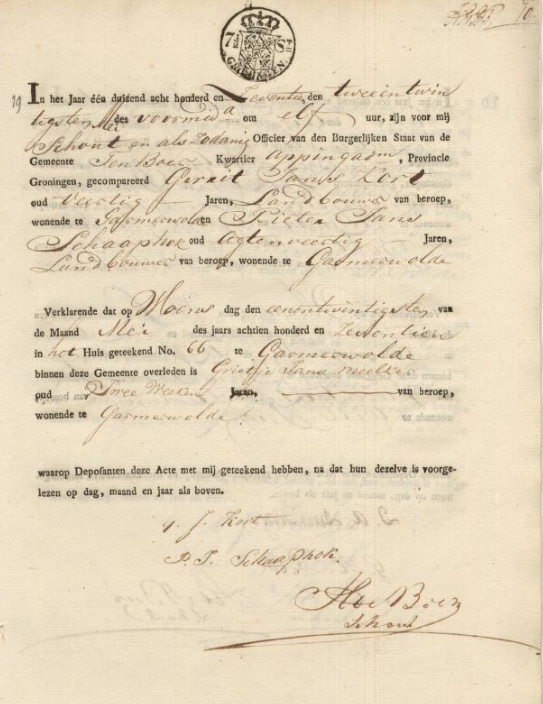 10
7½ S
GRONINGEN
19 In het Jaar één duizend acht honderd en Zeventien den tweeentwin
tigsten Mei des voormidd a om elf uur, zijn voor mij
Schout en als Zodanig Officier van den Burgerlijken Staat van de
Gemeente Ten Boer Kwartier Appingadm, Provincie
Groningen, gecompareerd Gerrit Jans Kort
oud Veertig Jaren, Landbouwer van beroep,
wonende te Garmerwolde en Pieter Jans
Schaaphok oud agtenveertig Jaren,
Landbouwer van beroep, wonende te Garmerwolde
Verklarende dat op Maan dag den eenentwintigsten van
de Maand Mei des jaars achtien honderd en Zeventien
in het Huis geteekend No. 66 te Garmerwolde
binnen deze Gemeente overleden is Grietje Jans
oud Twee Weeken Jaren, van beroep,
wonende te Garmerwolde
waarop Deposanten deze Acte met mij geteekend hebben, na dat hun dezelve is voorge-
lezen op dag, maand en jaar als boven.
J. Kort
P. J. Schaaphok
Boer
Schout